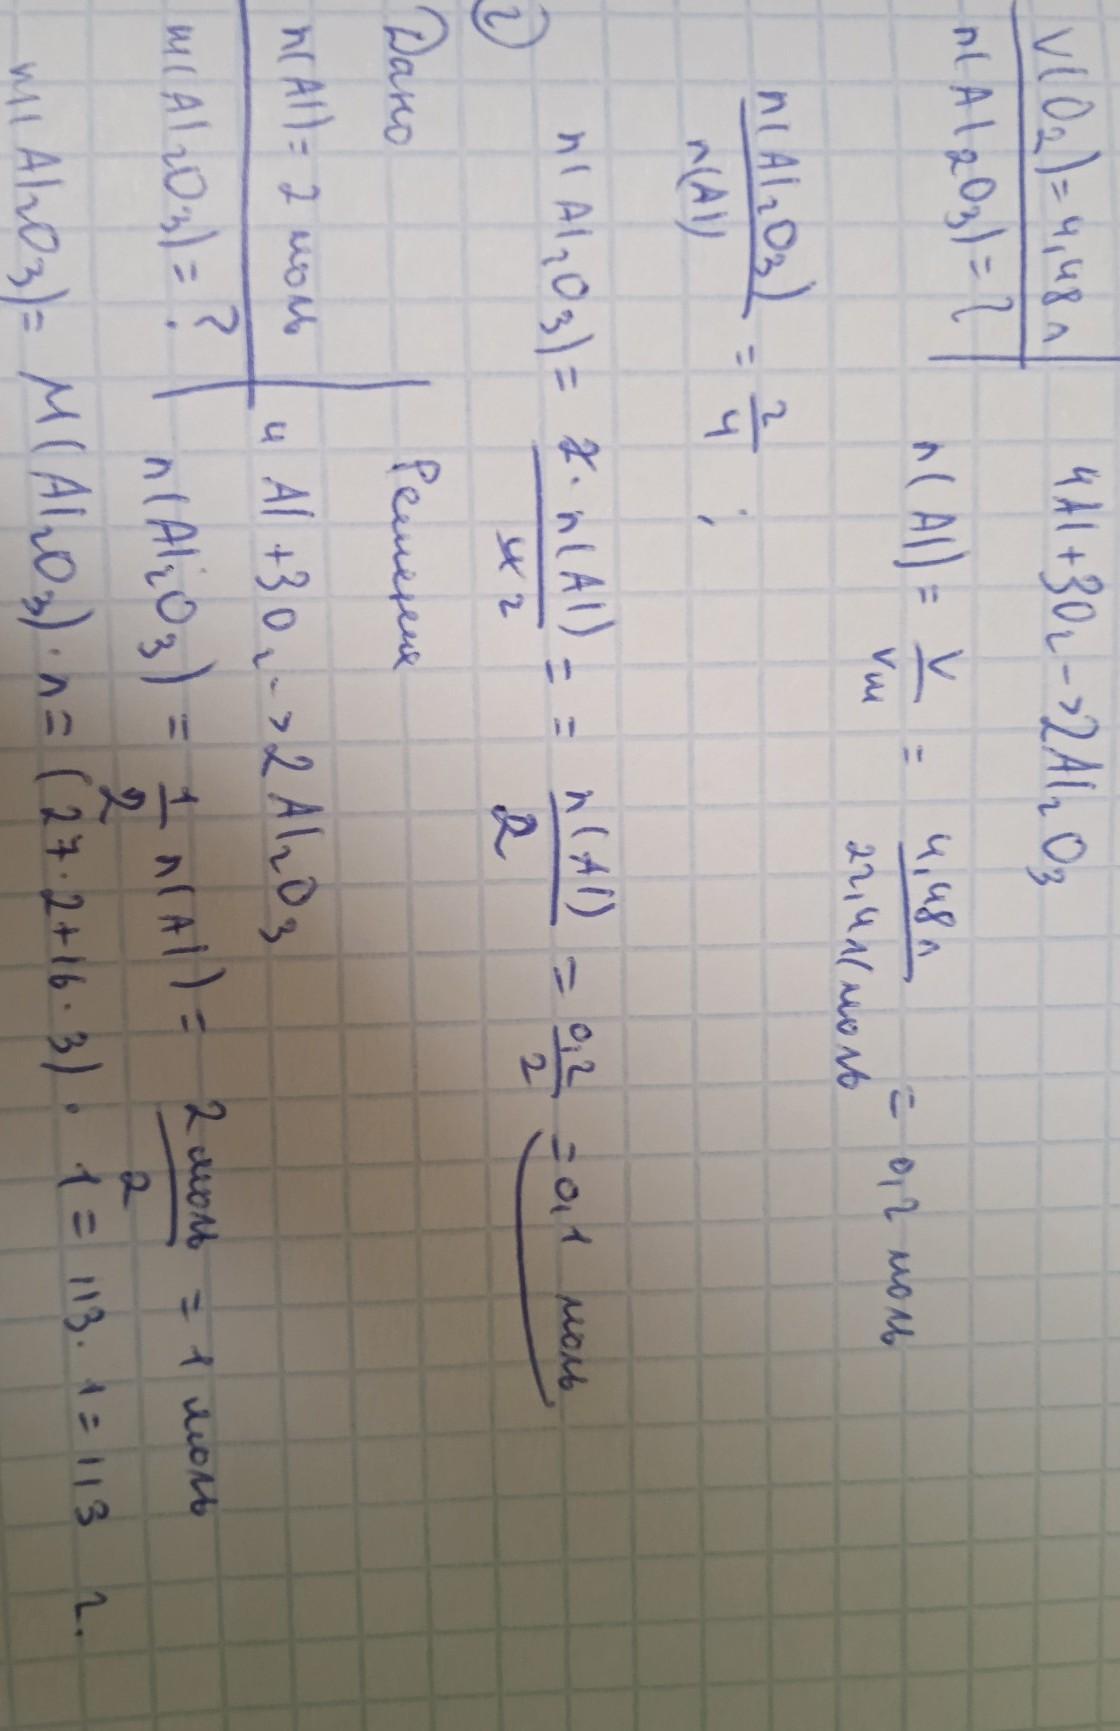 V(O₂)=4,48л 4Al+3O₂->2Al₂O₃
n(Al₂O₃)=? n(Al)= V/Vm = 4,48л/22,4л/моль = 0,2 моль
n(Al₂O₃)/n(Al) = 2/4 ;
n(Al₂O₃)= 2·n(Al)/4 2 = = n(Al)/2 = 0,2/2 =0,1 моль
2)
Дано Решение
n(Al)=2 моль 4Al+3O₂->2Al₂O₃
m(Al₂O₃)=? n(Al₂O₃) = 1/2 n(Al)= 2моль/2 = 1 моль
m(Al₂O₃)= M(Al₂O₃)·n=(27·2+16·3)·1=113·1=113 г.